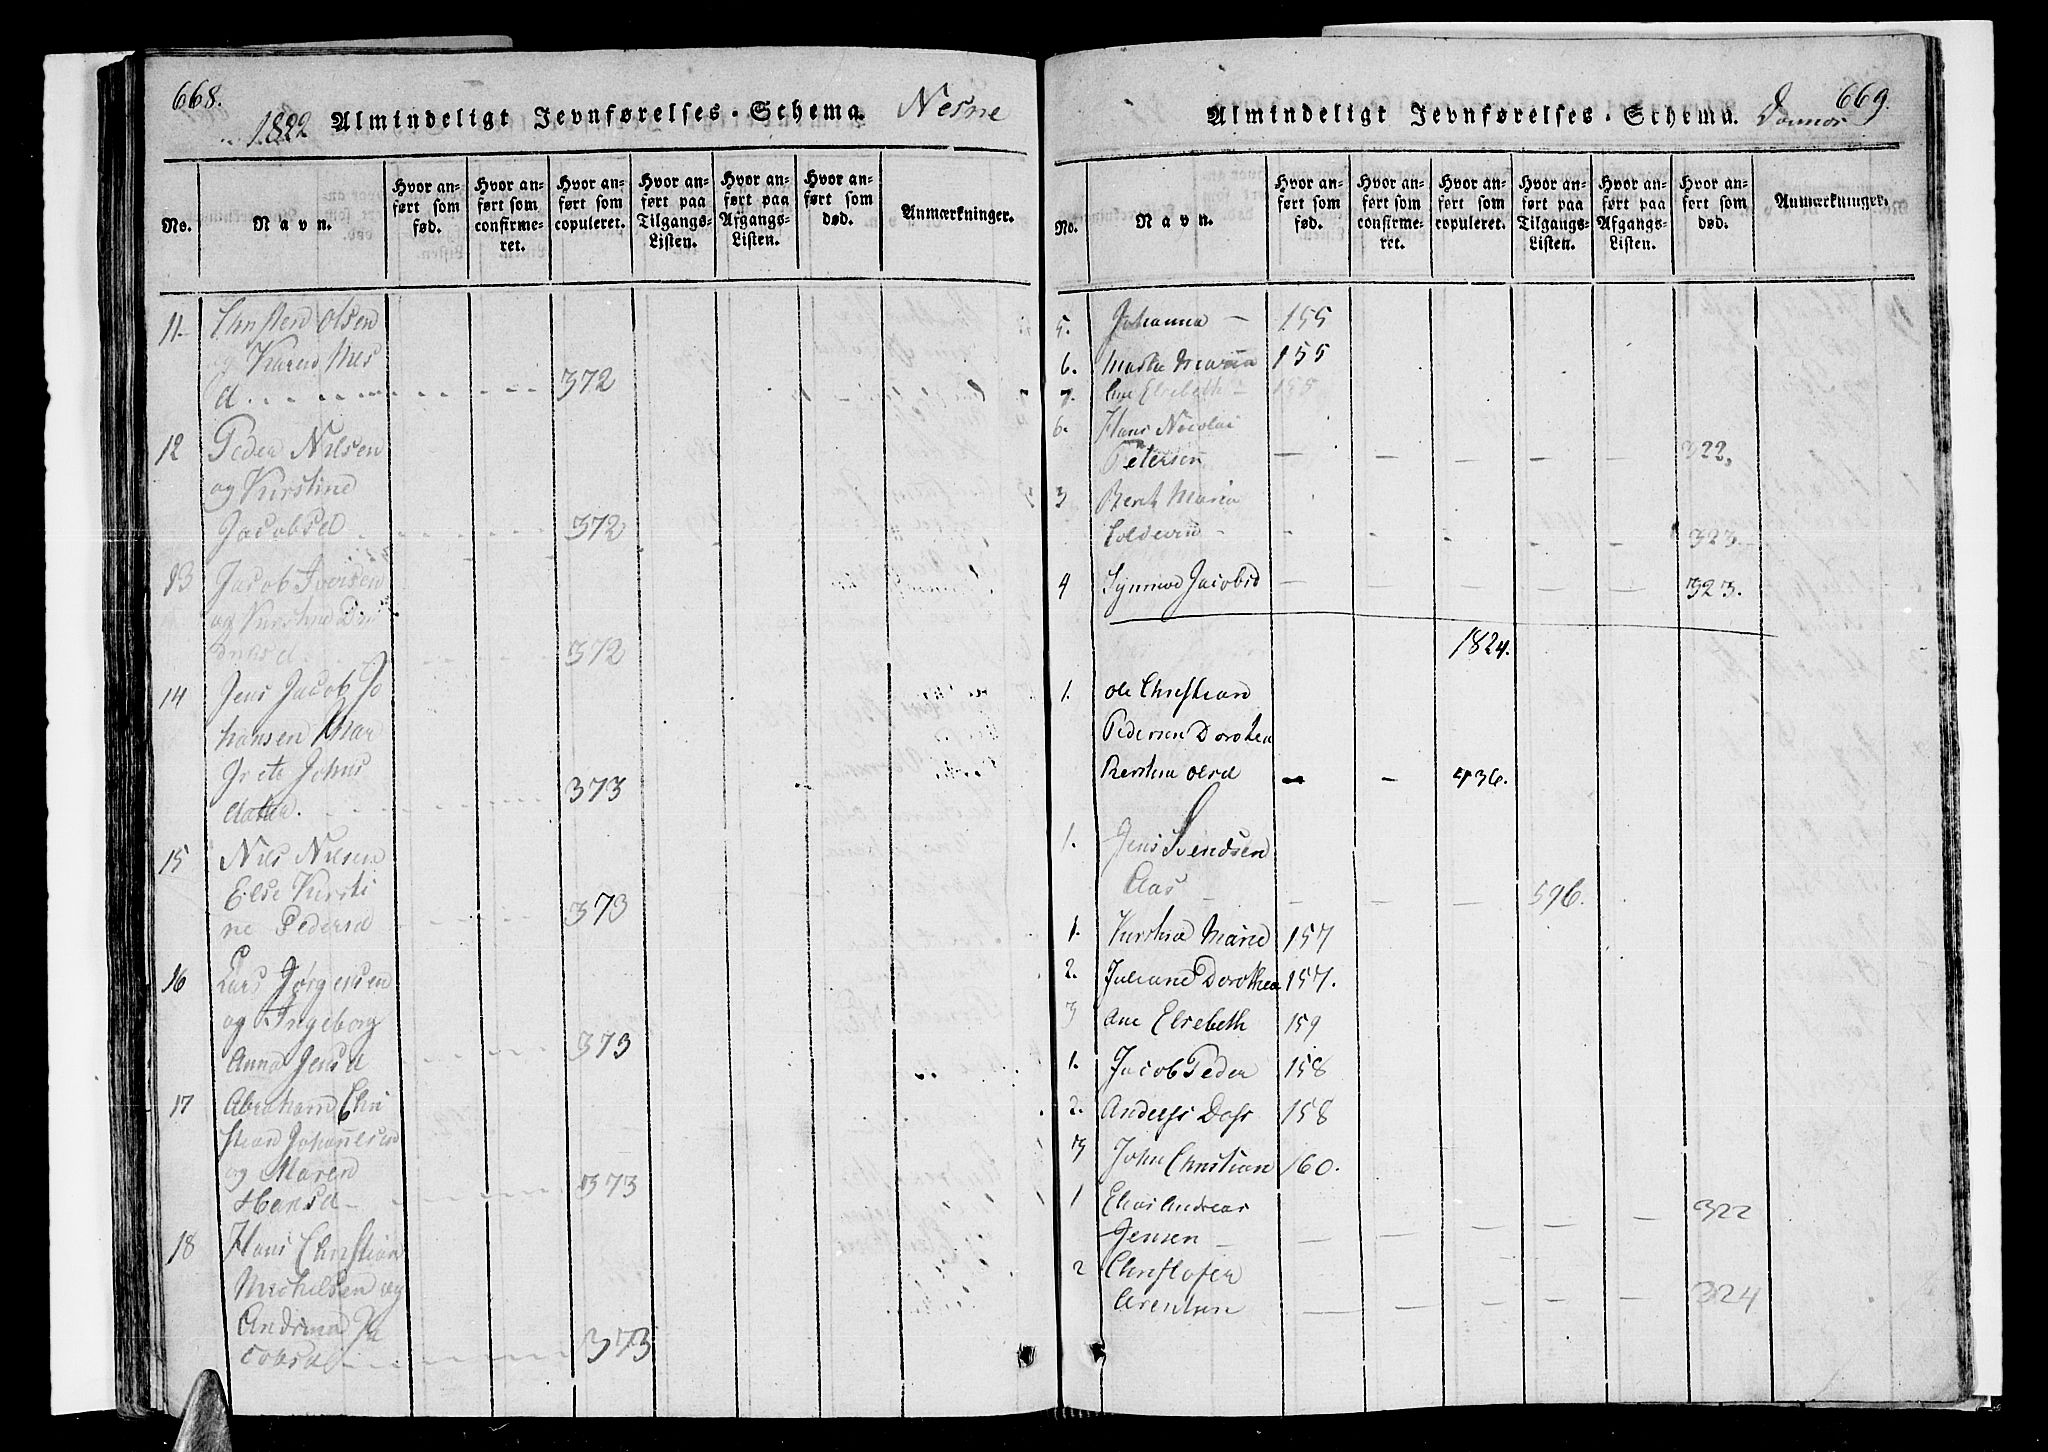 668.
1822 Almindeligt Jevnførelses-Schema. Nesne
No.
Navn.
Hvor anført som fød.
Hvor anført som confirmeret.
Hvor anført som copuleret.
Hvor anført paa Tilgangs-Listen.
Hvor anført paa Afgangs-Listen.
Hvor anført som død.
Anmærkninger.
11. Christen Olsen
og Karen Nils
d. 372
12 Peder Nilsen
og Kirstine
Jacobsd 372
13 Jacob Iversen
og Kirstine
372
14 Jens Jacob Jo
hansen Mar
grete Johns
datter. 373
15 Nils Nilsen
Else Kirsti
ne Pedersd 373
16 Lars Jørgensen
og Ingeborg
Anna Jensd 373
17 Abraham Chri
stian Johannesen
og Maren
Hansd 373
18 Hans Christian
Michelsen og
Andrina Ja
cobsd 373
669.
Almindeligt Jevnførelses-Schema. Dønnes
No.
Navn.
Hvor anført som fød.
Hvor anført som confirmeret.
Hvor anført som copuleret.
Hvor anført paa Tilgangs-Listen.
Hvor anført paa Afgangs-Listen.
Hvor anført som død.
Anmærkninger.
5. Johanna - 155
6. Martha Maria 155
7. Ane Elsebeth - 155
6. Hans Nicolai
Petersen - - - - - 322.
3 Berit Maria
Coldevin - - - - - 323.
4 Synnove Jacobsd - - - - - 323.
1824.
1. Ole Christian
Pedersen Dorothea
Kerstina Olsd - - 436.
1. Jens Svendsen
Aas - - - 596.
1. Kirstine Marie 157
2. Juliane Dorothea 157.
3 Ane Elsebeth 159
1. Jacob Peder 158
2. Anders Dass 158
3 John Christian 160.
1 Elias Andreas
Jensen - - - - - 322
2 Christofer
Arentsen - - - - - 324